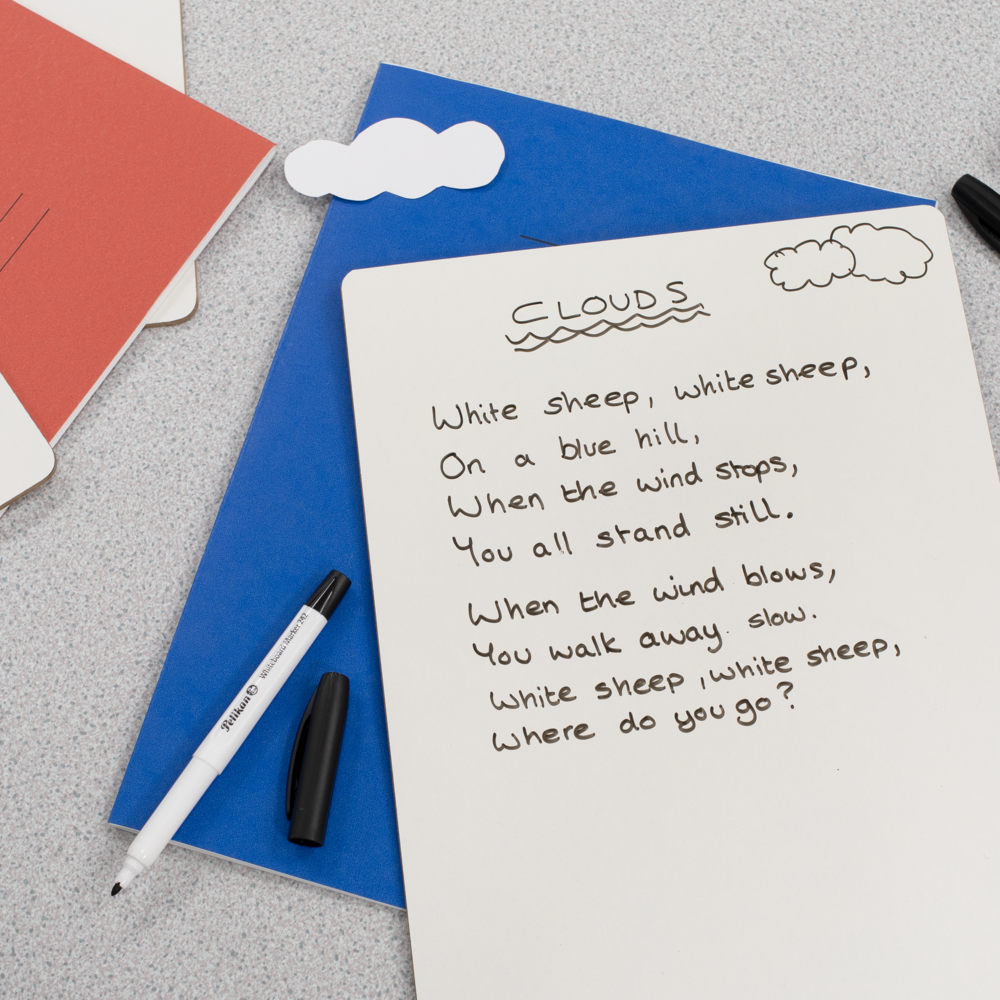 CLOUDS
White sheep, white sheep,
On a blue hill,
When the wind stops,
You all stand still.
When the wind blows,
You walk away slow.
White sheep, white sheep,
Where do you go?
Pelikan
Whiteboard Marker 742